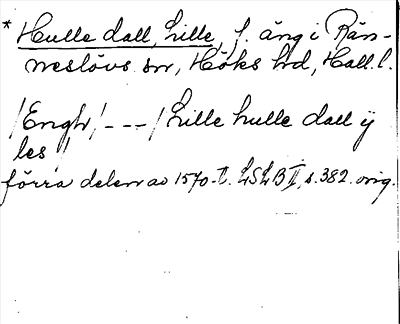 * Hulle dall, Lille, f. äng i Rän-
neslövs sn, Höks hd, Hall. l.
/Engh/ - - - / Lille hulle dall ij
les /
förra delen av 1570-t. LSLB II, s. 382. orig.